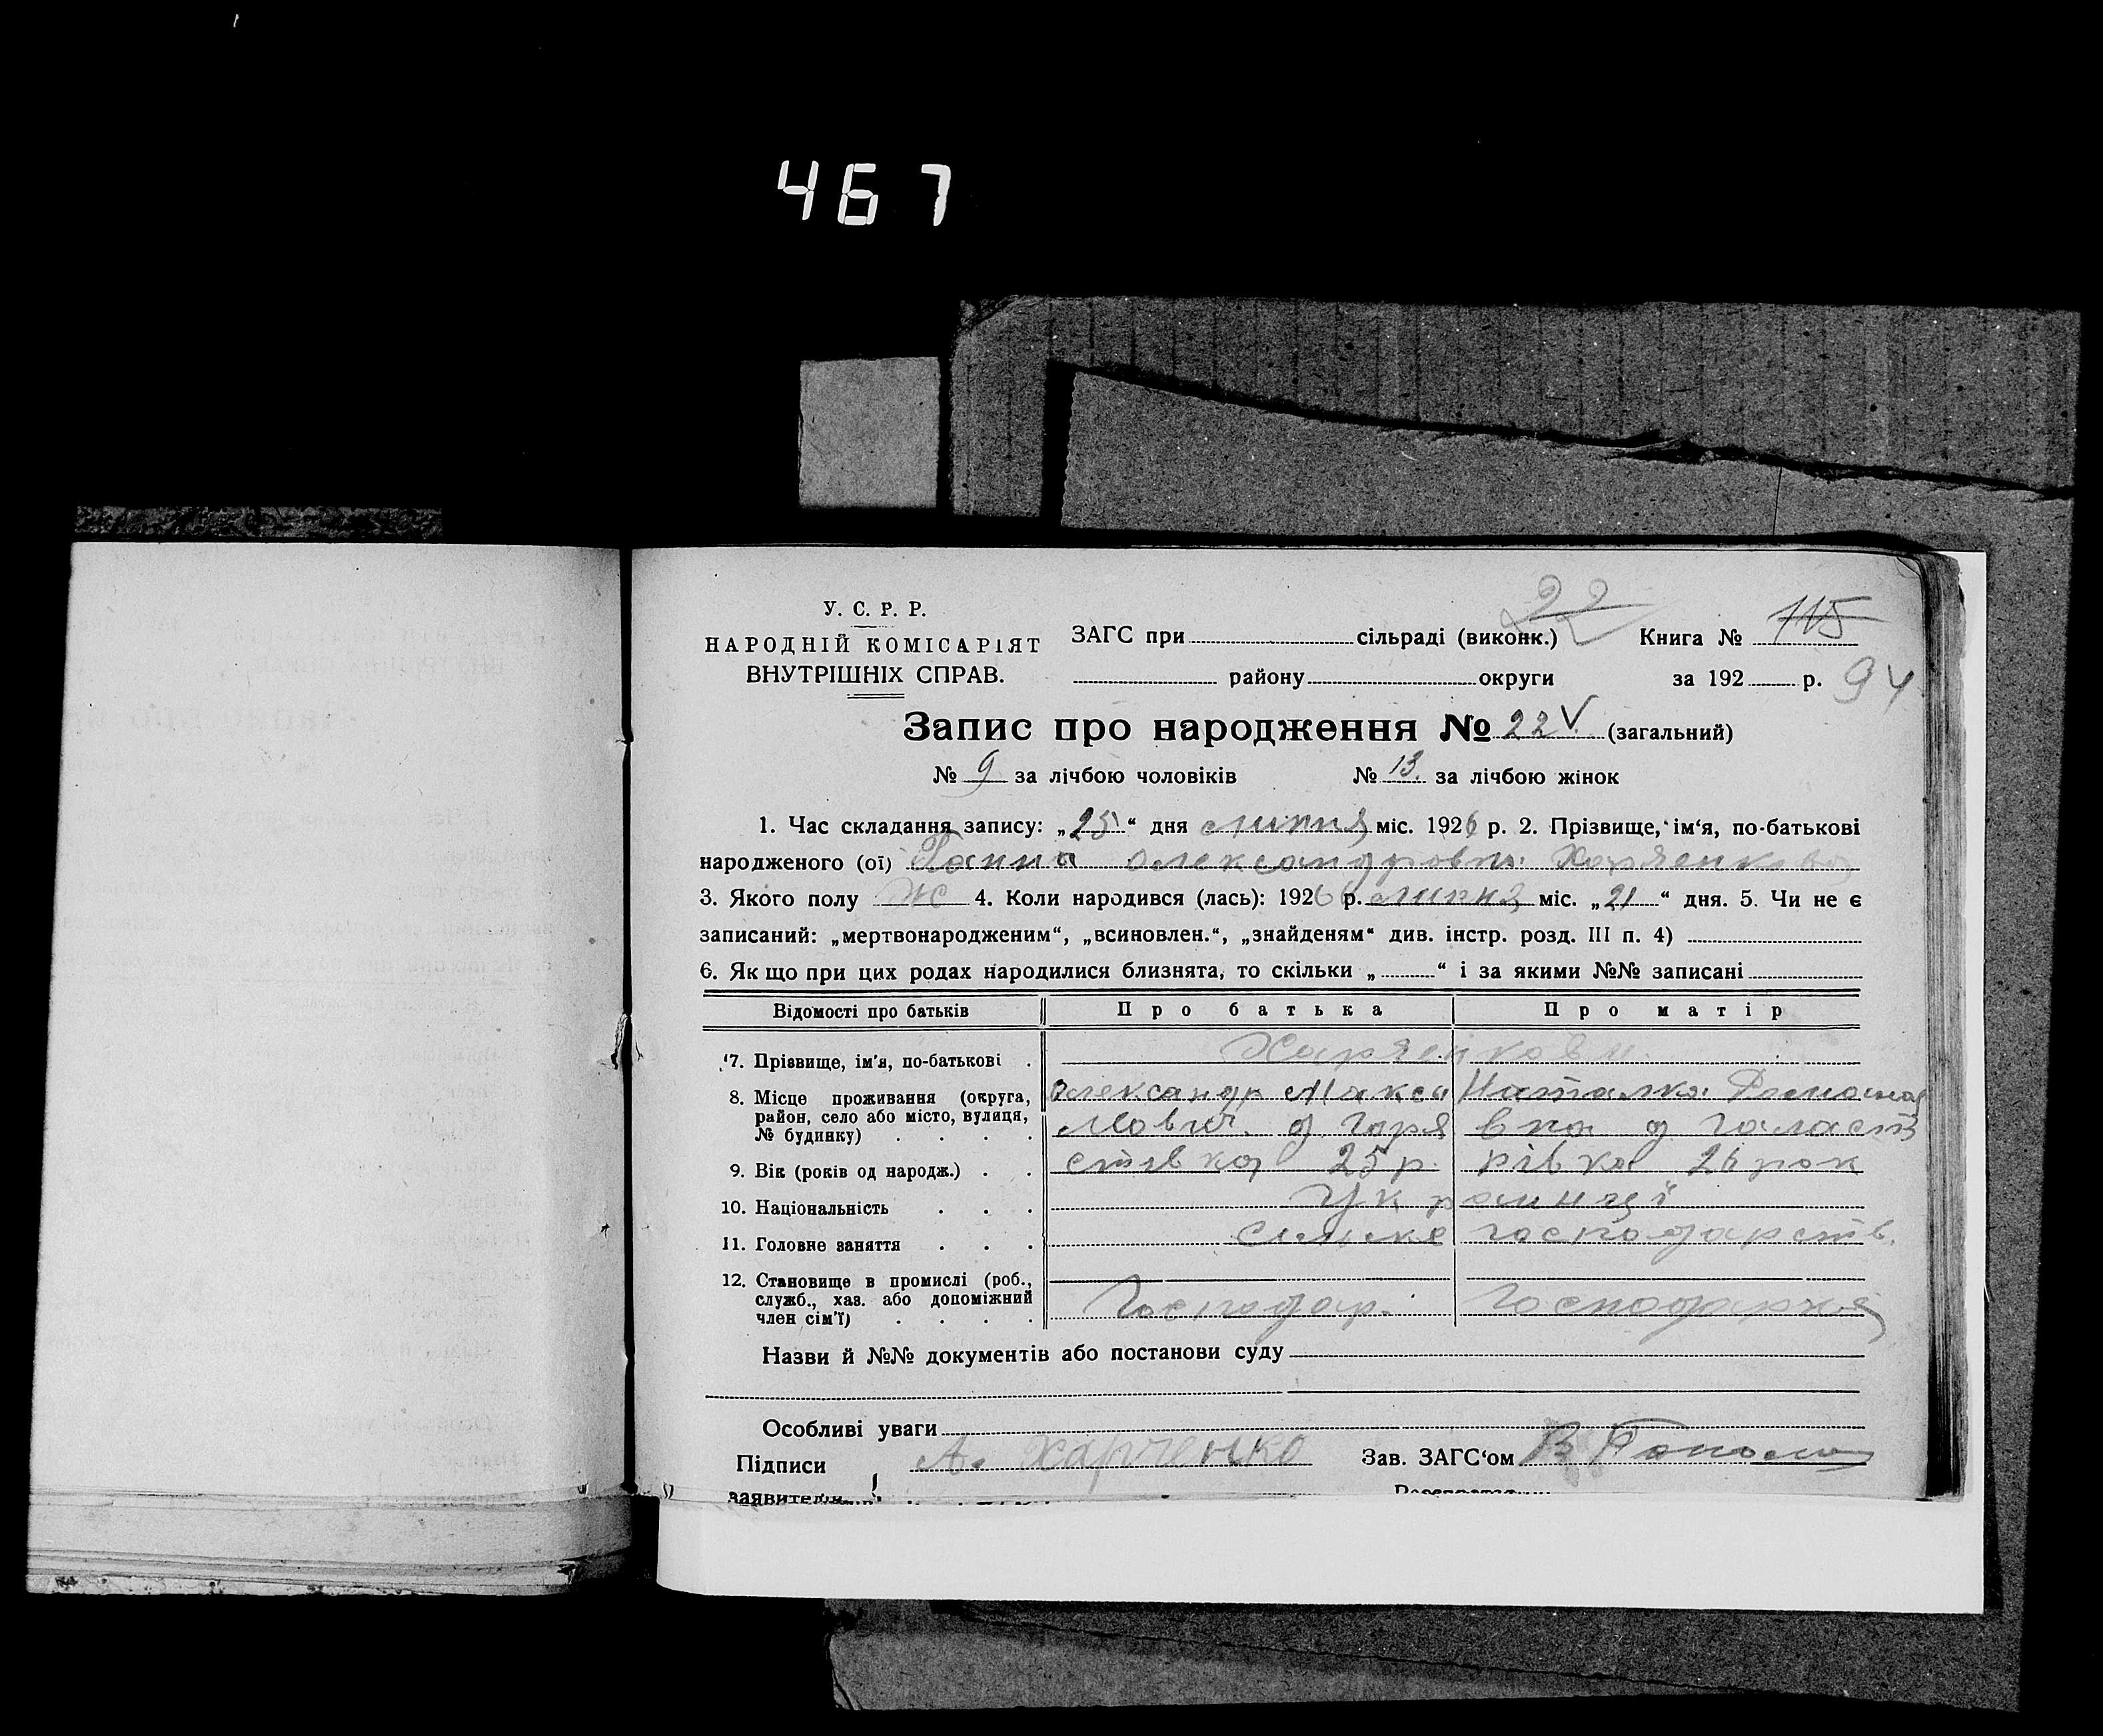 467
22
У. С. Р. Р.
НАРОДНІЙ КОМІСАРІЯТ
ВНУТРІШНІХ СПРАВ.
ЗАГС при сільраді (виконк.) Книга № 115
району округи за 192 р. 94
Запис про народження № 22 V. (загальний)
№ 9 за лічбою чоловіків № 13. за лічбою жінок
1. Час складання запису: „25“ дня липня міс. 1926 р. 2. Прізвище, ім‘я, по-батькові
народженого (ої) Ганна Олександровна Харченкова
3. Якого полу Ж 4. Коли народився (лась): 1926 р. липня міс. „21“ дня. 5. Чи не є
записаний: „мертвонародженим“, „всиновлен.“, „знайденям“ див. інстр. розд. III п. 4)
6. Якщо при цих родах народилися близнята, то скільки „ “ і за якими №№ записані
Відомості про батьків Про батька Про матір
7. Прізвище, ім'я, по-батькові . Харченкови
8. Місце проживання (округа, район, село або місто, вулиця, № будинку) . . . . Олександр Макси Наталка
мович. д. вна д.
9. Вік (років од народж.) . . 25 р. 26 рок
10. Національність . . . Українці
11. Головне заняття . . . сильке господарств.
12. Становище в промислі (роб., служб., хаз. або допоміжний член сім'ї) . . . . Господар. Господаркя
Назви й №№ документів або постанови суду
Особливі уваги
Підписи А. Харченко Зав. ЗАГС‘ом В
заявителів